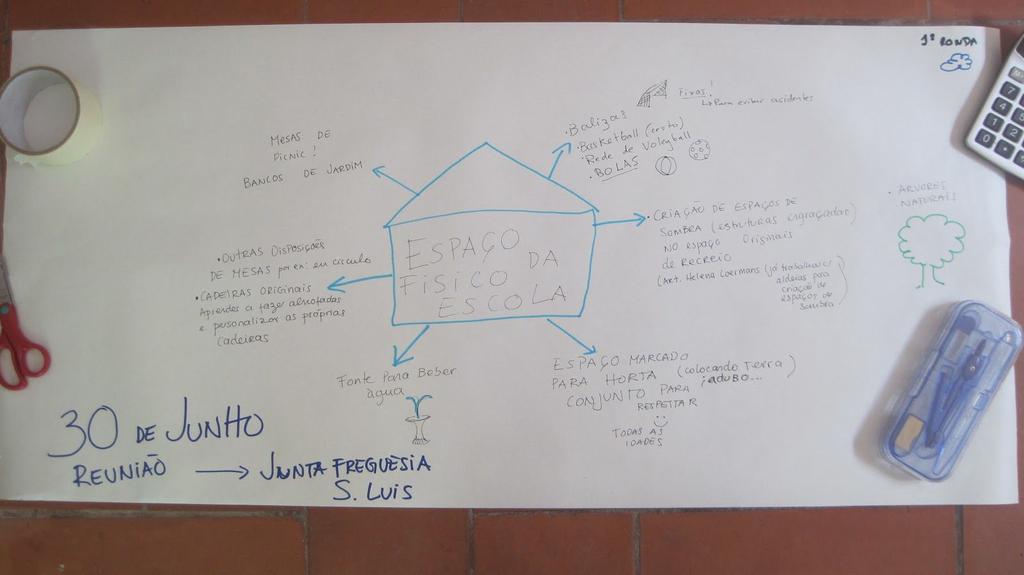 1ª RONDA
MESAS DE
PICNIC!
BANCOS DE JARDIM
• Balizas
Fixas!
↳ Para evitar acidentes
• Basketball (cesto)
• Rede de Voleyball
• BOLAS
• ARVORES
NATURAIS
ESPAÇO DA
FÍSICO
ESCOLA
• CRIAÇÃO DE ESPAÇOS DE
SOMBRA (estruturas engraçadas)
NO ESPAÇO Originais
de RECREIO
(Art. Helena Loermans (já trabalhou c/
aldeias para
criação de
espaços de
sombra)
• OUTRAS DISPOSIÇÕES
DE MESAS por ex: em círculo
• CADEIRAS ORIGINAIS
Aprender a fazer almofadas
e personalizar as próprias
cadeiras
Fonte Para Beber
água
ESPAÇO MARCADO
PARA HORTA (colocando Terra)
CONJUNTO PARA ADUBO...
RESPEITAR
TODAS AS
IDADES
30 DE JUNHO
REUNIÃO → JUNTA FREGUESIA
S. LUIS
7
4
1
0
8
5
2